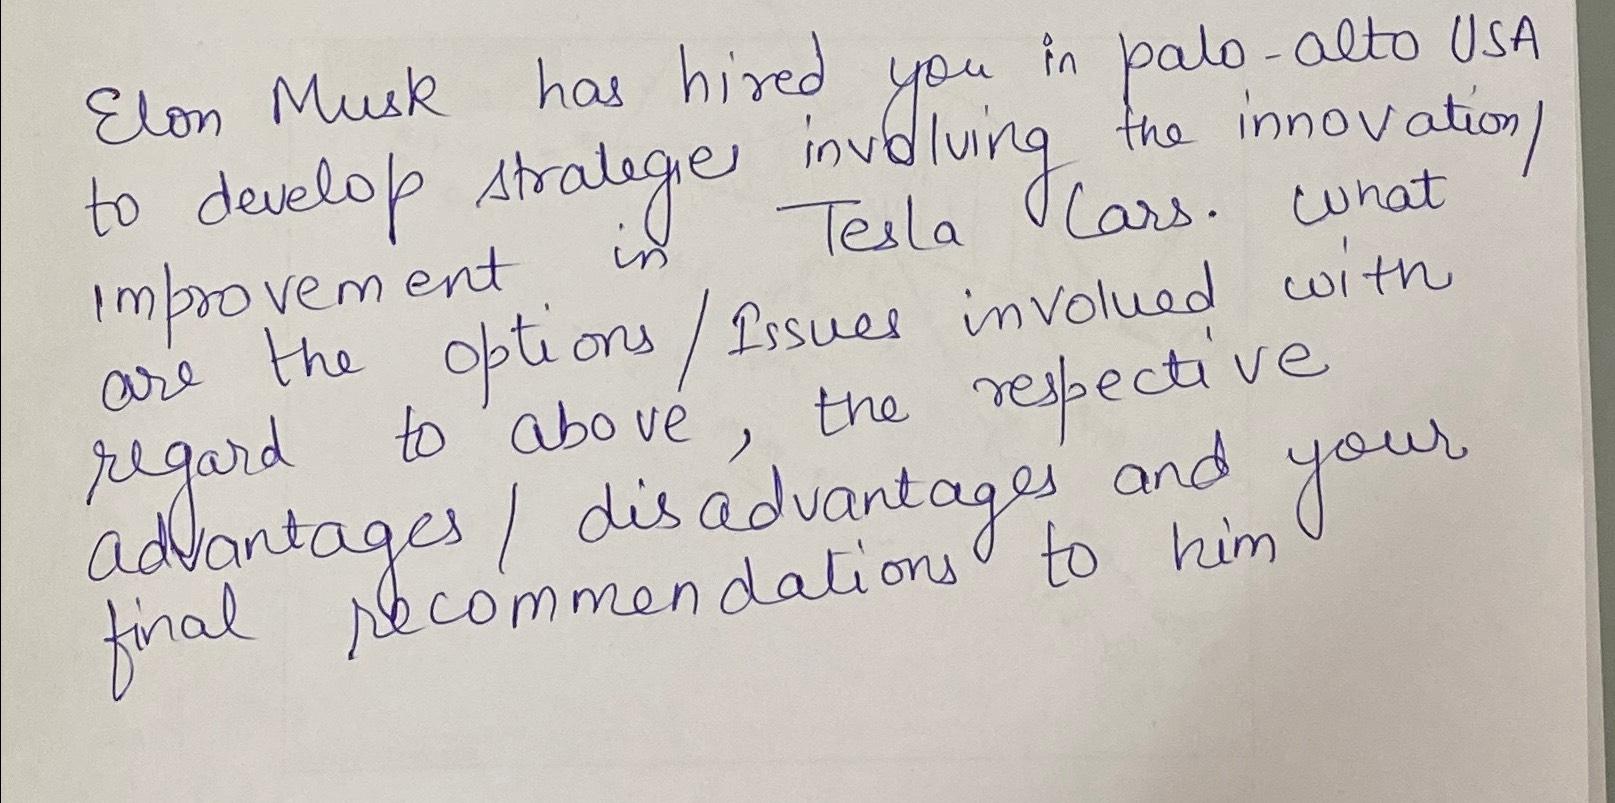 Elon Musk has hired you in palo-alto USA
to develop strategies involving the innovation/
improvement in Tesla Cars. What
are the options/Issues involved with
regard to above, the respective
advantages/disadvantages and your
final recommendations to him